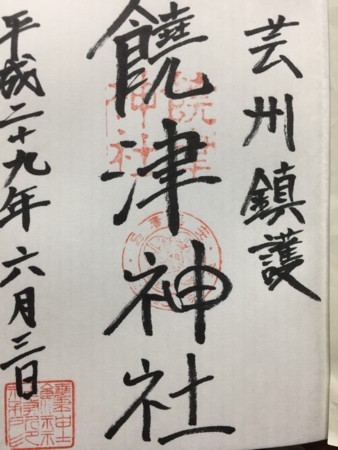 芸州鎮護
饒津神社
平成二十九年六月三日